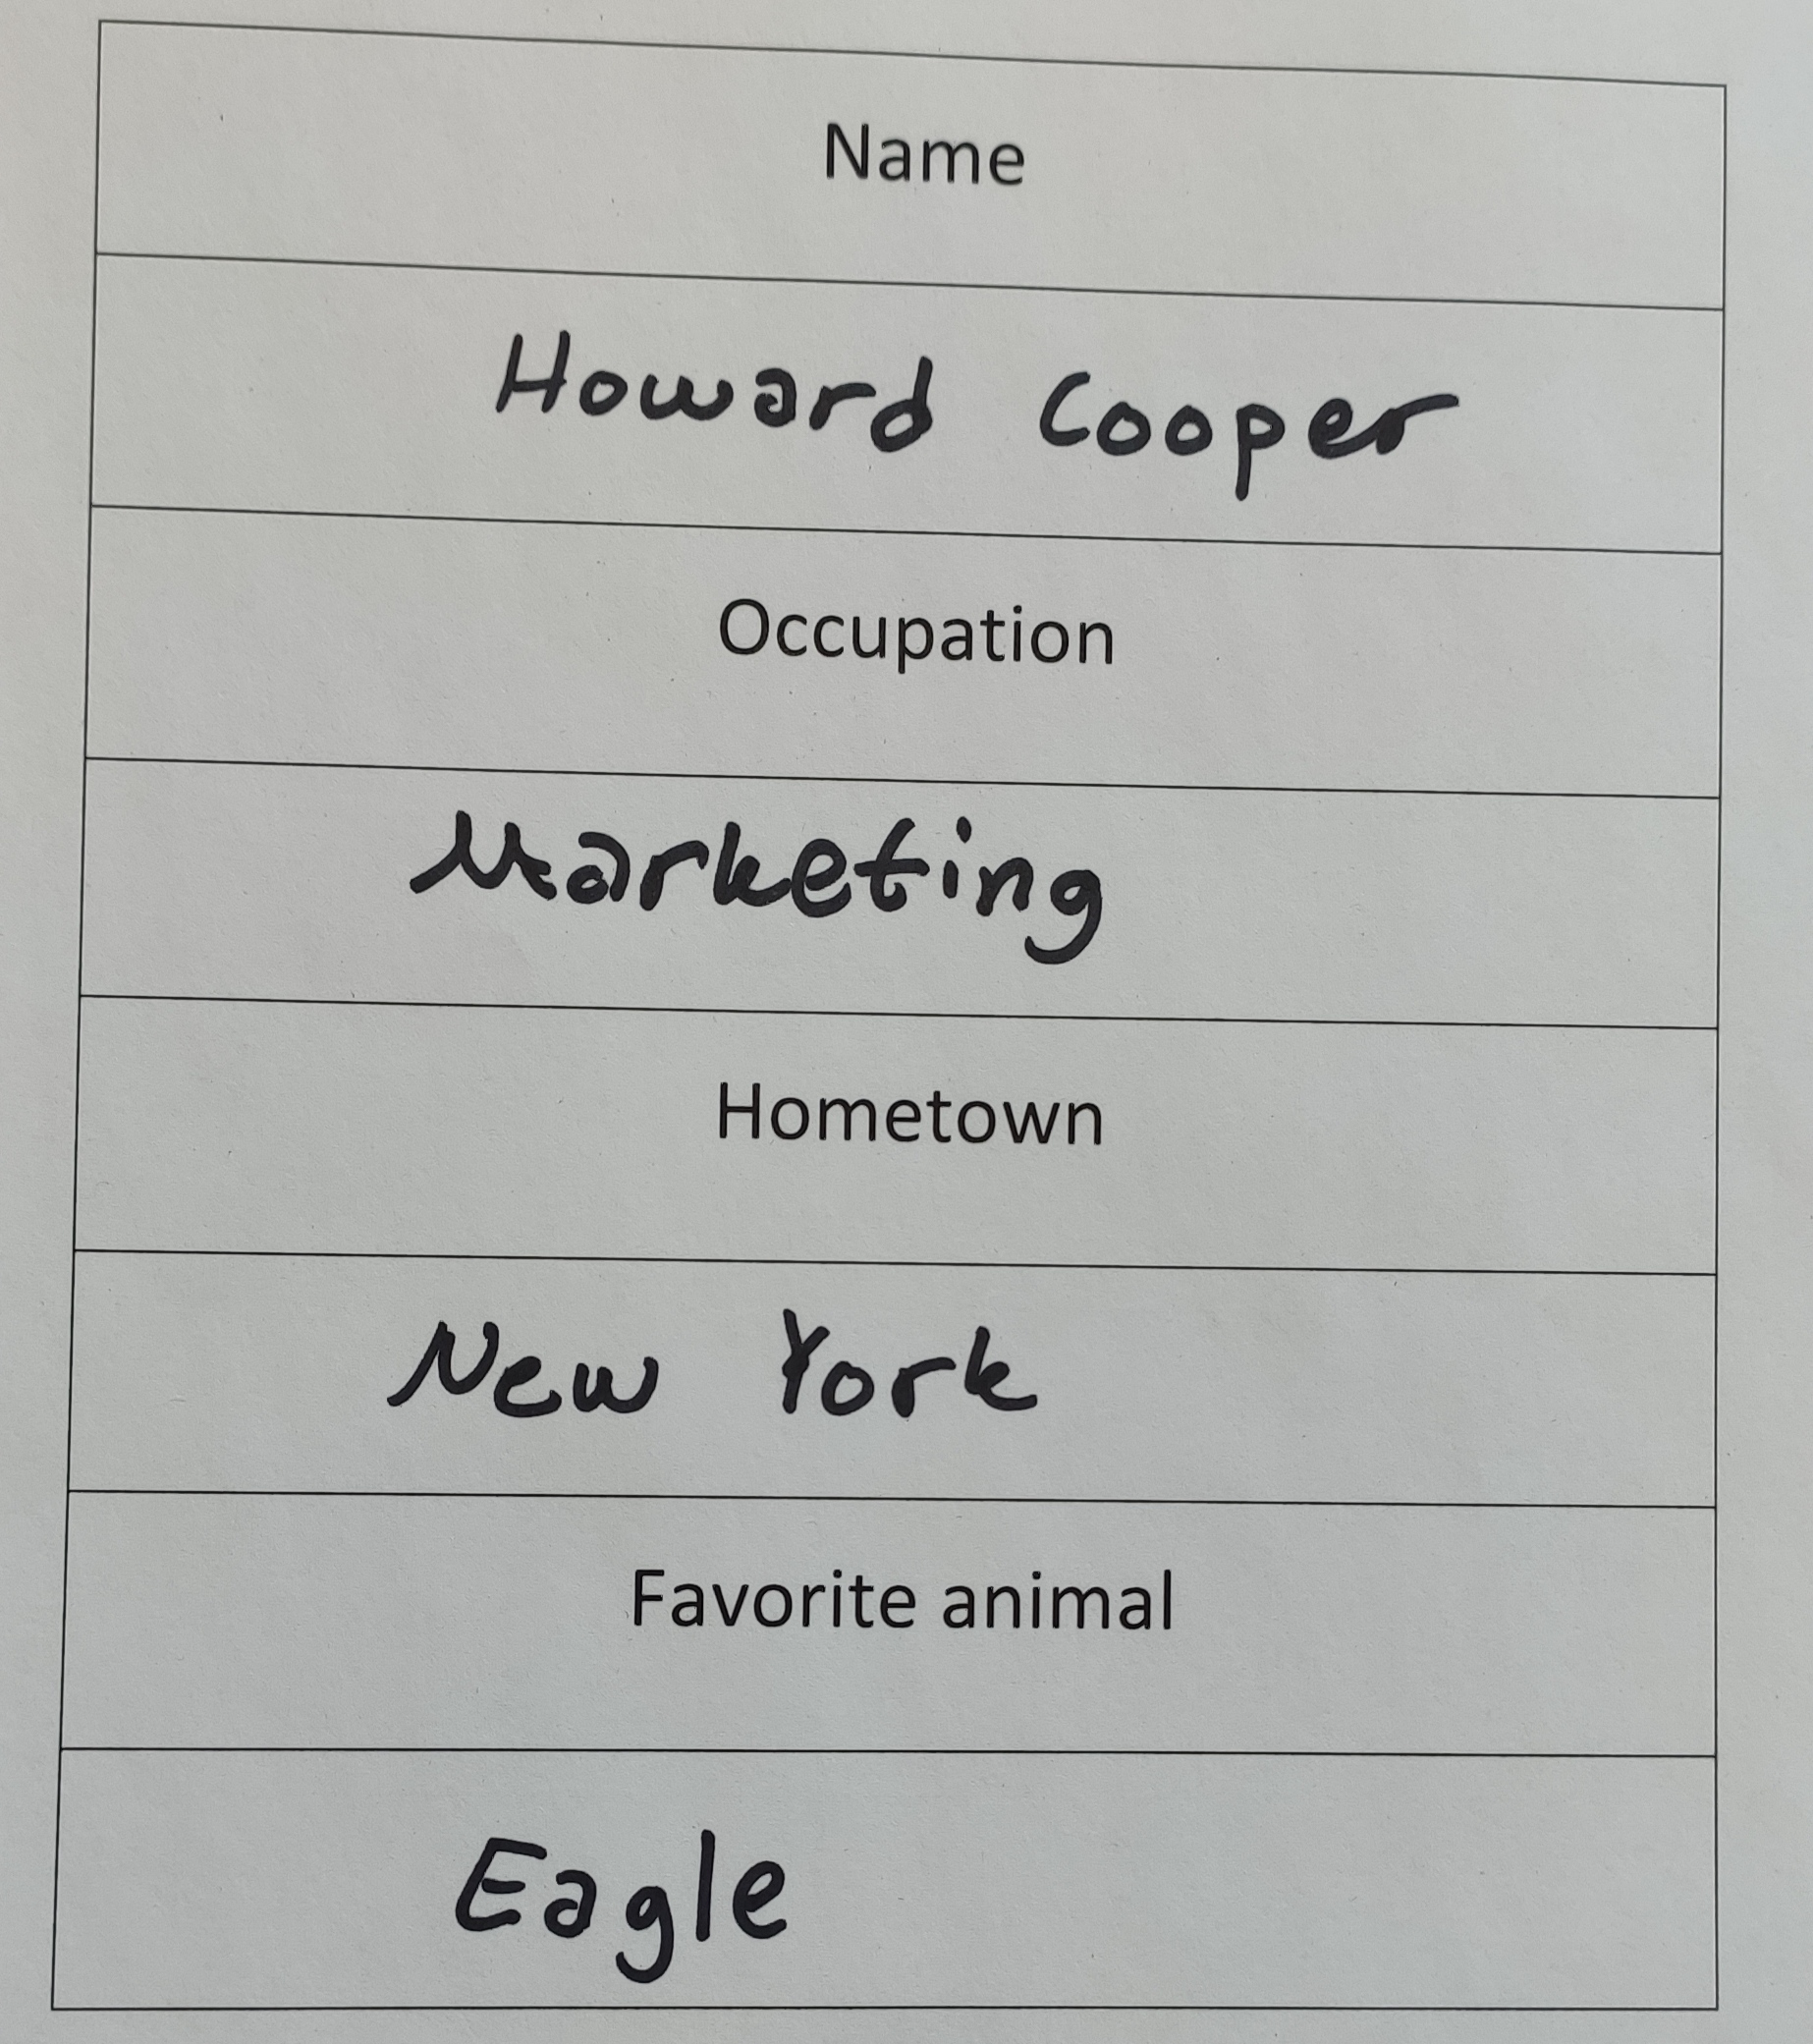 Name
Howard Cooper
Occupation
Marketing
Hometown
New York
Favorite animal
Eagle